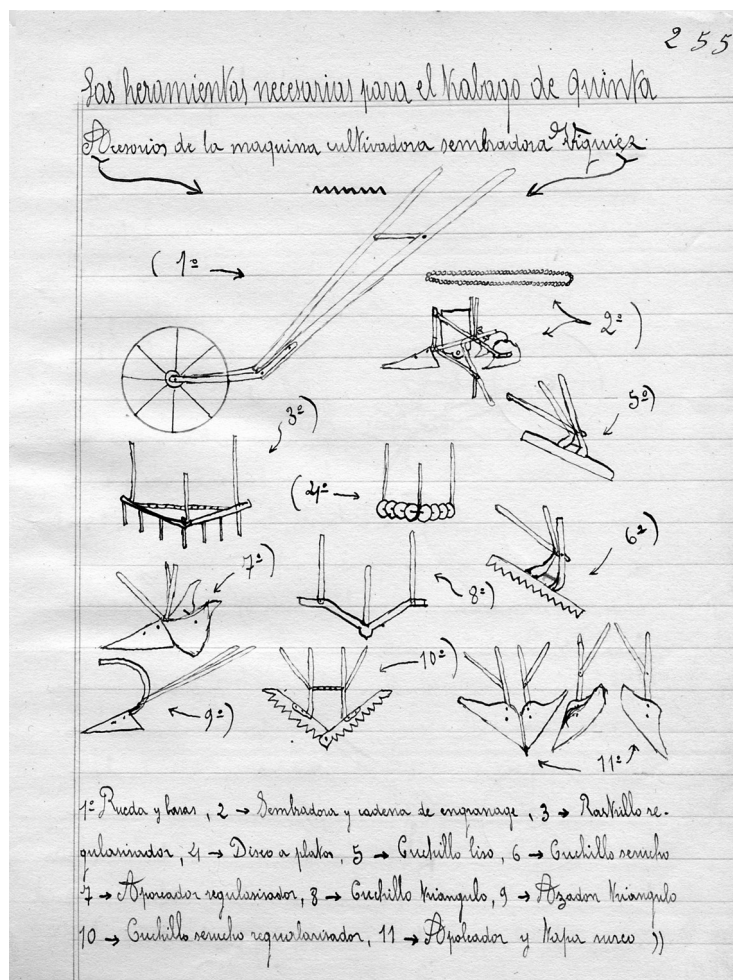 255
Las heramientas necesarias para el trabago de quinta
Acesorios de la maquina cultivadora sembradora
( 1º →
2º )
5º)
3º)
( 4º →
6º)
7º)
8º)
10º)
9º)
11º
1º Rueda y baras , 2 → Sembradora y cadena de engranage , 3 → Rastrillo re-
gularisador , 4 → Disco a platos , 5 → Cuchillo liso , 6 → Cuchillo serucho
7 → Aporcador regularisador , 8 → Cuchillo triangulo , 9 → Azadon triangulo
10 → Cuchillo serucho requlari­sador , 11 → Aporcador y tapa surco ))